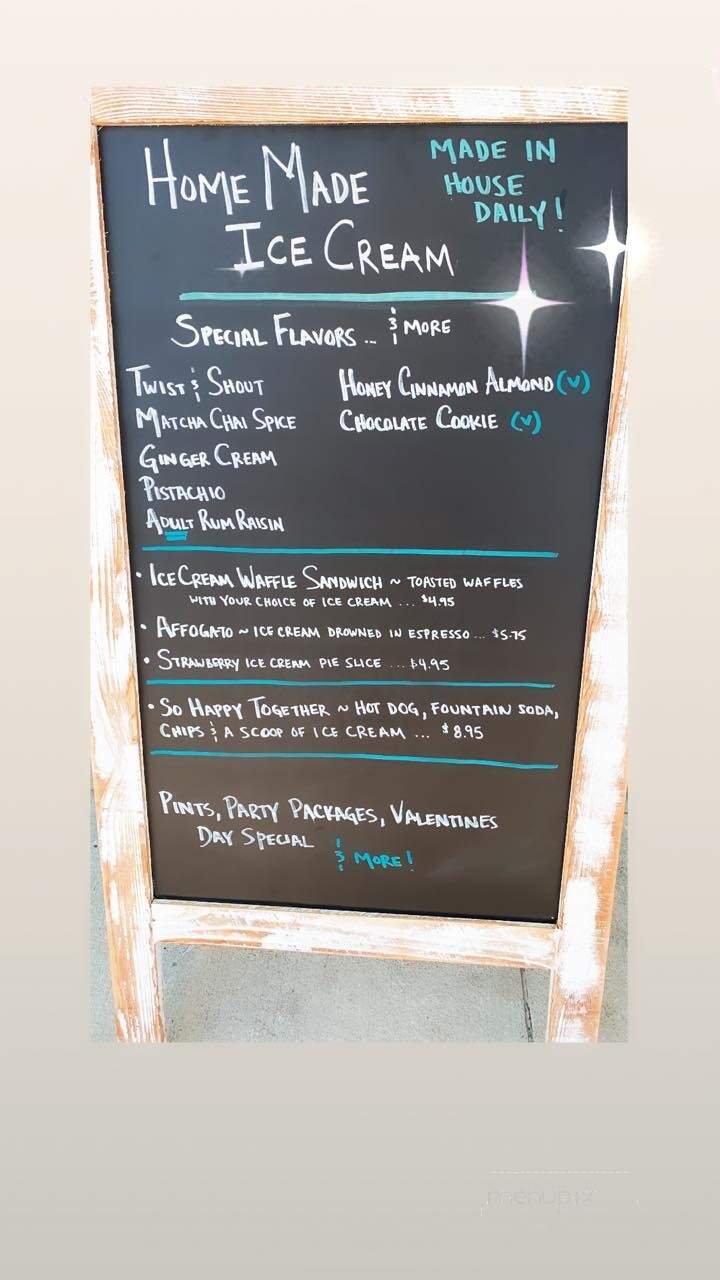 HOME MADE
ICE CREAM
MADE IN
HOUSE
DAILY!
SPECIAL FLAVORS ... & MORE
TWIST & SHOUT
MATCHA CHAI SPICE
GINGER CREAM
PISTACHIO
ADULT RUM RAISIN
HONEY CINNAMON ALMOND (V)
CHOCOLATE COOKIE (V)
• ICE CREAM WAFFLE SANDWICH ~ TOASTED WAFFLES
WITH YOUR CHOICE OF ICE CREAM ... $4.95
• AFFOGATO ~ ICE CREAM DROWNED IN ESPRESSO ... $5.75
• STRAWBERRY ICE CREAM PIE SLICE ... $4.95
• SO HAPPY TOGETHER ~ HOT DOG, FOUNTAIN SODA,
CHIPS & A SCOOP OF ICE CREAM ... $8.95
PINTS, PARTY PACKAGES, VALENTINES
DAY SPECIAL
& MORE!
menupix